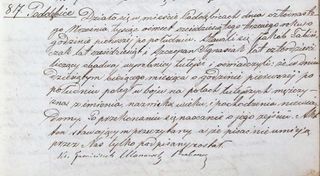 87 Poddębice Działo się w mieście Poddębicach dnia czternastego
Września tysiąc dziewięćset czternastego roku o
godzinie pierwszej po południu. Stawili się Jakób
lat czterdzieści, i Szczepan Ignasiak lat czterdzieści
liczący obadwaj wyrobnicy tutejsi i oświadczyli, że w dniu
dziesiątym bieżącego miesiąca o godzinie pierwszej po
południu poległ w boju na polach tutejszych mężczy-
zna z imienia, nazwiska, wieku i pochodzenia niewia-
domy. Po przekonaniu się naocznie o jego zejściu. Akt
ten stawającym przeczytany a że pisać nie umieją
przez Nas tylko podpisany został.
Ks.